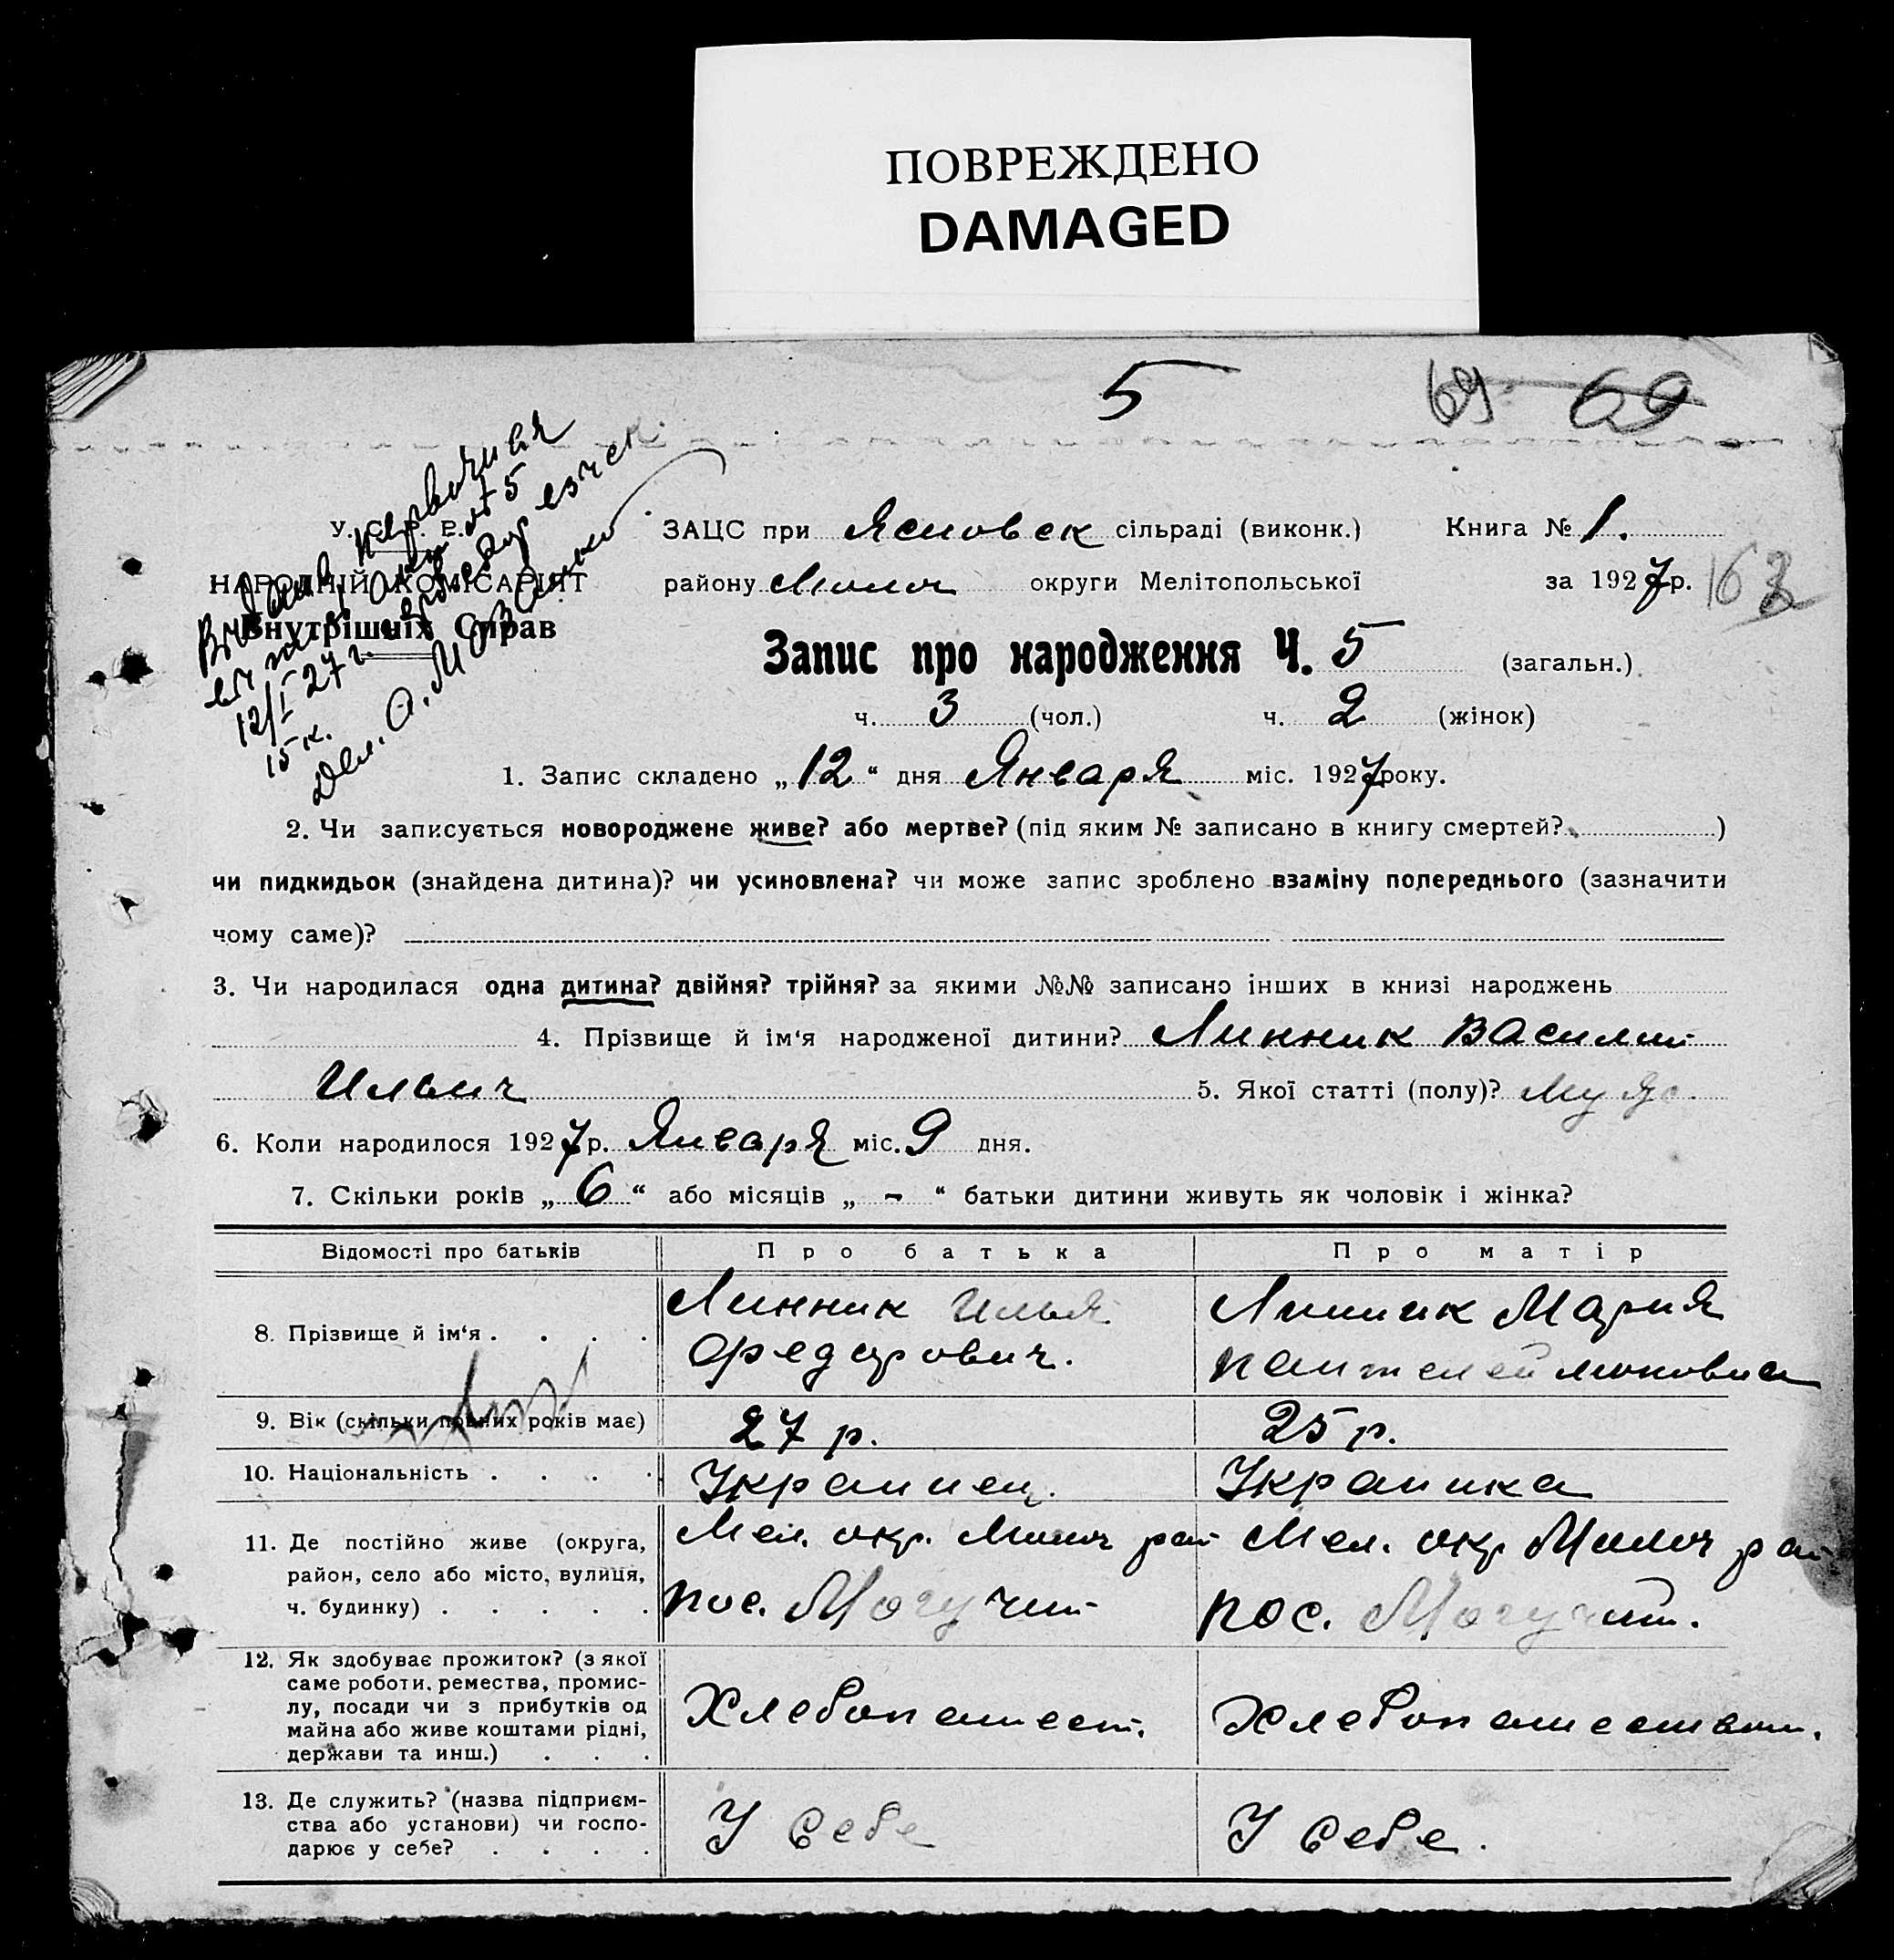 ПОВРЕЖДЕНО
DAMAGED
5
69 69
У. С. Р. Р.
НАРОДНІЙ КОМІСАРІЯТ
Внутрішніх Справ
12/I 27 г.
15 к.
ЗАЦС при Ясновск сільраді (виконк.) Книга № 1.
району округи Мелітопольської за 1927р.
163
Запис про народження Ч. 5 (загальн.)
ч. 3 (чол.) ч. 2 (жінок)
1. Запис складено „12“ дня Января міс. 1927року.
2. Чи записується новороджене живе? або мертве? (під яким № записано в книгу смертей? )
чи пидкидьок (знайдена дитина)? чи усиновлена? чи може запис зроблено взаміну попереднього (зазначити
чому саме)?
3. Чи народилася одна дитина? двійня? трійня? за якими №№ записано інших в книзі народжень
4. Прізвище й ім‘я народженої дитини? Линник Василий
Ильич 5. Якої статті (полу)? Муж.
6. Коли народилося 1927р. Января міс. 9 дня.
7. Скільки років „6“ або місяців „-“ батьки дитини живуть як чоловік і жінка?
Відомості про батьків Про батька Про матір
8. Прізвище й ім‘я . . . . Линник Илья Федорович. Линник Мария Пантелеймоновна
9. Вік (скільки повних років має) 27 р. 25 р.
10. Національність . . . . Украинец. Украинка
11. Де постійно живе (округа, Мел. окр. рай Мел. окр рай
район, село або місто, вулиця,
ч. будинку) . . . . . пос. Могучий пос. Могучий.
12. Як здобуває прожиток? (з якої
саме роботи, ремества, промис-
лу, посади чи з прибутків од Хлебопашест. Хлебопашеством.
майна або живе коштами рідні,
держави та инш.) . . .
13. Де служить? (назва підприєм-
ства або установи) чи госпо- У себе У себе.
дарює у себе? . . . .